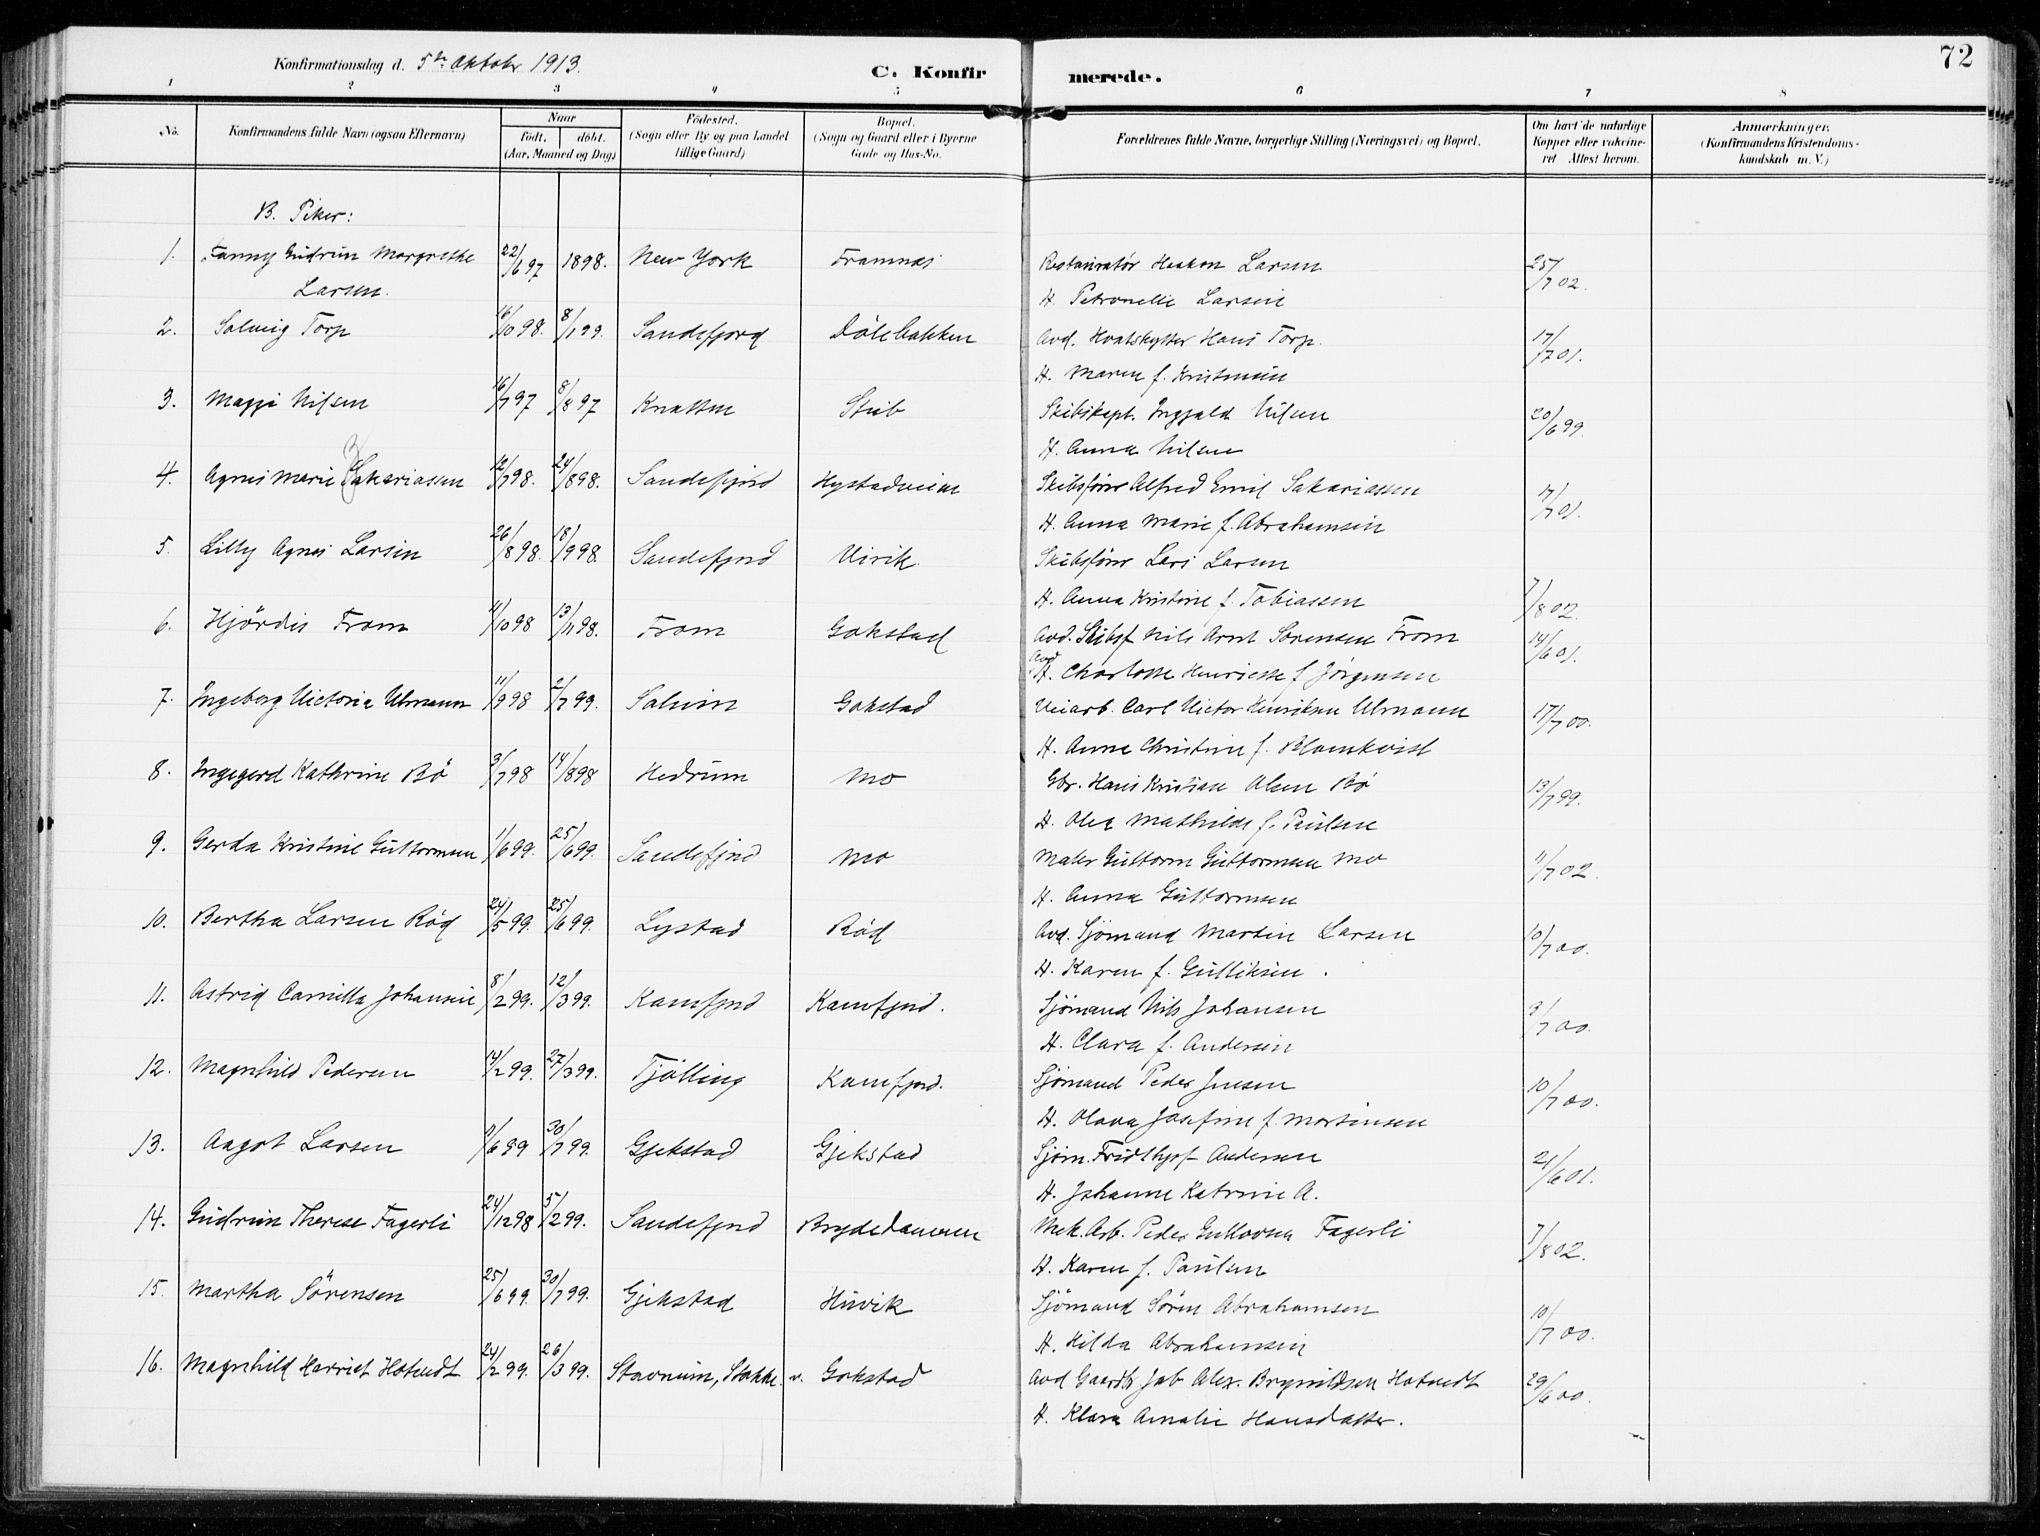 72
Konfirmationsdag d. 5te Oktobr 1913.
C. Konfirmerede.
1 2 3 4 5 6 7 8
No. Konfirmandens fulde Navn (ogsaa Efternavn) Naar født. døbt. (Aar, Maaned og Dag) Fødested. (Sogn eller By og paa Landet tillige Gaard) Bopæl. (Sogn og Gaard eller i Byerne Gade og Hus-No. Forældrenes fulde Navne, borgerlige Stilling (Næringsvei) og Bopæl. Om havt de naturlige Kopper eller vakcineret Attest herom. Anmærkninger. (Konfirmandens Kristendomskundskab m. V.)
B. Piker:
1. Fanny Gudrun Margrethe 22/6 97 1898. New York Framnæs Restauratør Haakon Larsen 25/7 02.
Larsen. H. Petronelle Larsen
2. Solveig Torp 16/10 98. 8/1 99. Sandefjord Dölebakken Avd. Hvalskytter Hans Torp. 17/7 01.
H. Maren f. Kristensen
3. Maggi Nilsen 16/7 97 8/8 97 Knatten Stub Skibskapt. Ingjald Nilsen 20/6 99.
H. Anna Nilsen
4. Agnes Marie Sakariassen 12/7 98. 24/8 98. Sandefjord Hystadveien Skibsfører Alfred Emil Sakariassen 17/7 01.
H. Anna Marie f. Abrahamsen
5. Lilly Agnes Larsen 26/8 98. 18/9 98. Sandefjord Virik Skibsfører Lars Larsen
H. Anna Kristine f. Tobiassen 7/8 02.
6. Hjördis From 11/10 98 13/11 98. From Gokstad Avd. Skibsf. Nils Arnt Sørensen From 14/6 01.
Avd H. Charlotte Henriette f Jørgensen
7. Ingeborg Victoria Ulmann 11/9 98 2/7 99. Solum Gokstad Veiarb. Carl Victor Henriksen Ulmann 17/7 00.
H. Anne Christine f. Blomkvist
8. Ingegerd Kathrine Bö 3/7 98 14/8 98 Hedrum Mo Gbr. Hans Kristian Olsen Bø 13/7 99.
H. Olea Mathilde f. Paulsen
9. Gerda Kristine Guttormsen 1/6 99. 25/6 99. Sandefjord Mo Maler Guttorm Guttormsen Mo 11/7 02.
H. Anna Guttormsen
10. Bertha Larsen Röd 24/5 99. 25/6 99. Lystad Röd Avd. Sjömand Martin Larsen 10/7 00.
H. Karen f. Gulliksen.
11. Astrid Camilla Johansen 8/2 99. 12/3 99. Kamfjord Kamfjord. Sjömand Nils Johansen 9/7 00.
H. Clara f. Andersen
12. Magnhild Pedersen 14/2 99. 27/3 99. Tjölling Kamfjord. Sjömand Peder Jensen 10/7 00.
H. Olava Josefine f. Martinsen
13. Aagot Larsen /6 99 30/7 99. Gjekstad Gjekstad Sjöm. Fridthjof Andersen 21/6 01.
H. Johanne Katrine A.
14. Gudrun Therese Fagerli 24/12 98 5/2 99. Sandefjord Brydedammen Mek. Arb. Peder Gullovsen Fagerli 7/8 02.
H. Karen f. Paulsen
15. Martha Sörensen 25/6 99. 30/7 99. Gjekstad Huvik Sjömand Søren Abrahamsen 10/7 00.
H. Hilda Abrahamsen
16. Magnhild Harriet Hotvedt 24/2 99. 26/3 99. Stavnum, Stokke. v. Gokstad Avd Gaardb. Jab Alex. Brynildsen Hotvedt 29/6 00.
H. Klara Amalie Hansdatter.